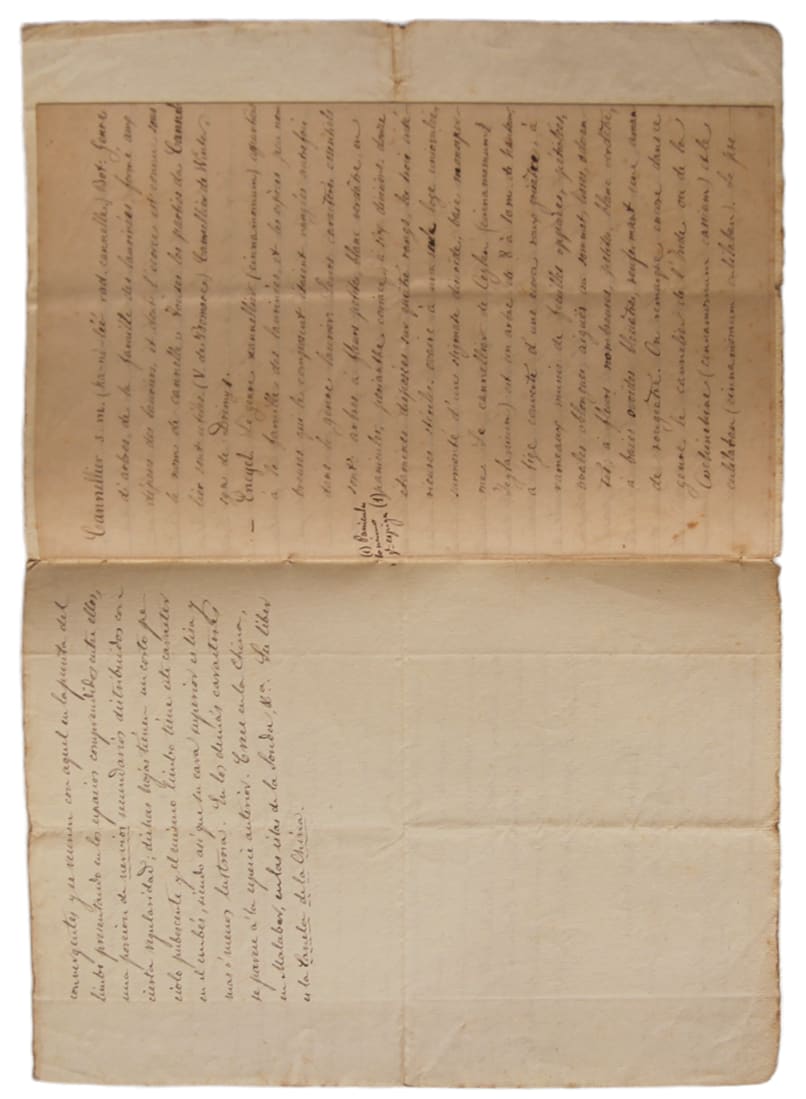 convergentes y se reunen con aquel en la punta del
limbo presentando en los espacios comprendidos entre ellos,
una porcion de nervios secundarios distribuidos con
cierta regularidad; dichas hojas tienen un corto pe
ciolo pubescente y el mismo limbo tiene este caracter
en el embés, siendo asi que su cara superior es lisa y
mas ó menos lustrosa. En los demás caractéres
se parece á la especie anterior. Crece en la China,
en Malabar, en las islas de la Sonda, &a. Su liber
es la Canela de la China.
Cannellier s. m. (ka-nè-lié rad. cannelle) Bot. Genre
d'arbres, de la famille des laurinées, formé aux
dépens des lauriers, et dont l'écorce est connue sous
le nom de cannelle: Toutes les parties du Cannel
lier sont utiles. (V. de Bomare) Cannellier de Winter,
syn. de Drimys.
— Encycl. Le genre cannellier (cinnamomum) appartient
à la famille des laurinées et les espèces peu nom
breuses qui le composent étaient rangées autrefois
dans le genre laurier. Leurs caractères essentiels
sont: arbres à fleurs petites, blanc verdâtre, en
panicules, (1) périanthe coriace, à six divisions, douze
étamines disposées sur quatre rangs, les trois inté
rieures stériles, ovaire à une seule loge uniovulée,
surmonté d'un stigmate discoïde, baie monosper
me. Le cannellier de Ceylan (cinnamomum
zeylanicum) est un arbre de 8 à 10 m. de hauteur,
à tige couverte d'une écorce rougeâtre, à
rameaux munis de feuilles opposées, pétiolées,
ovales oblongues, aiguës au sommet, lisses,
à fleurs nombreuses, petites, blanc verdâtre,
à baies ovoïdes bleuâtres, renfermant une aman
de rougeâtre. On remarque encore dans ce
genre le cannelier de l'Inde ou de la
Cochinchine (cinnamomum cassia) et le
culilaban (cinnamomum culilaban). Le pre
(1) Panicula
lo mismo
q.e espiga